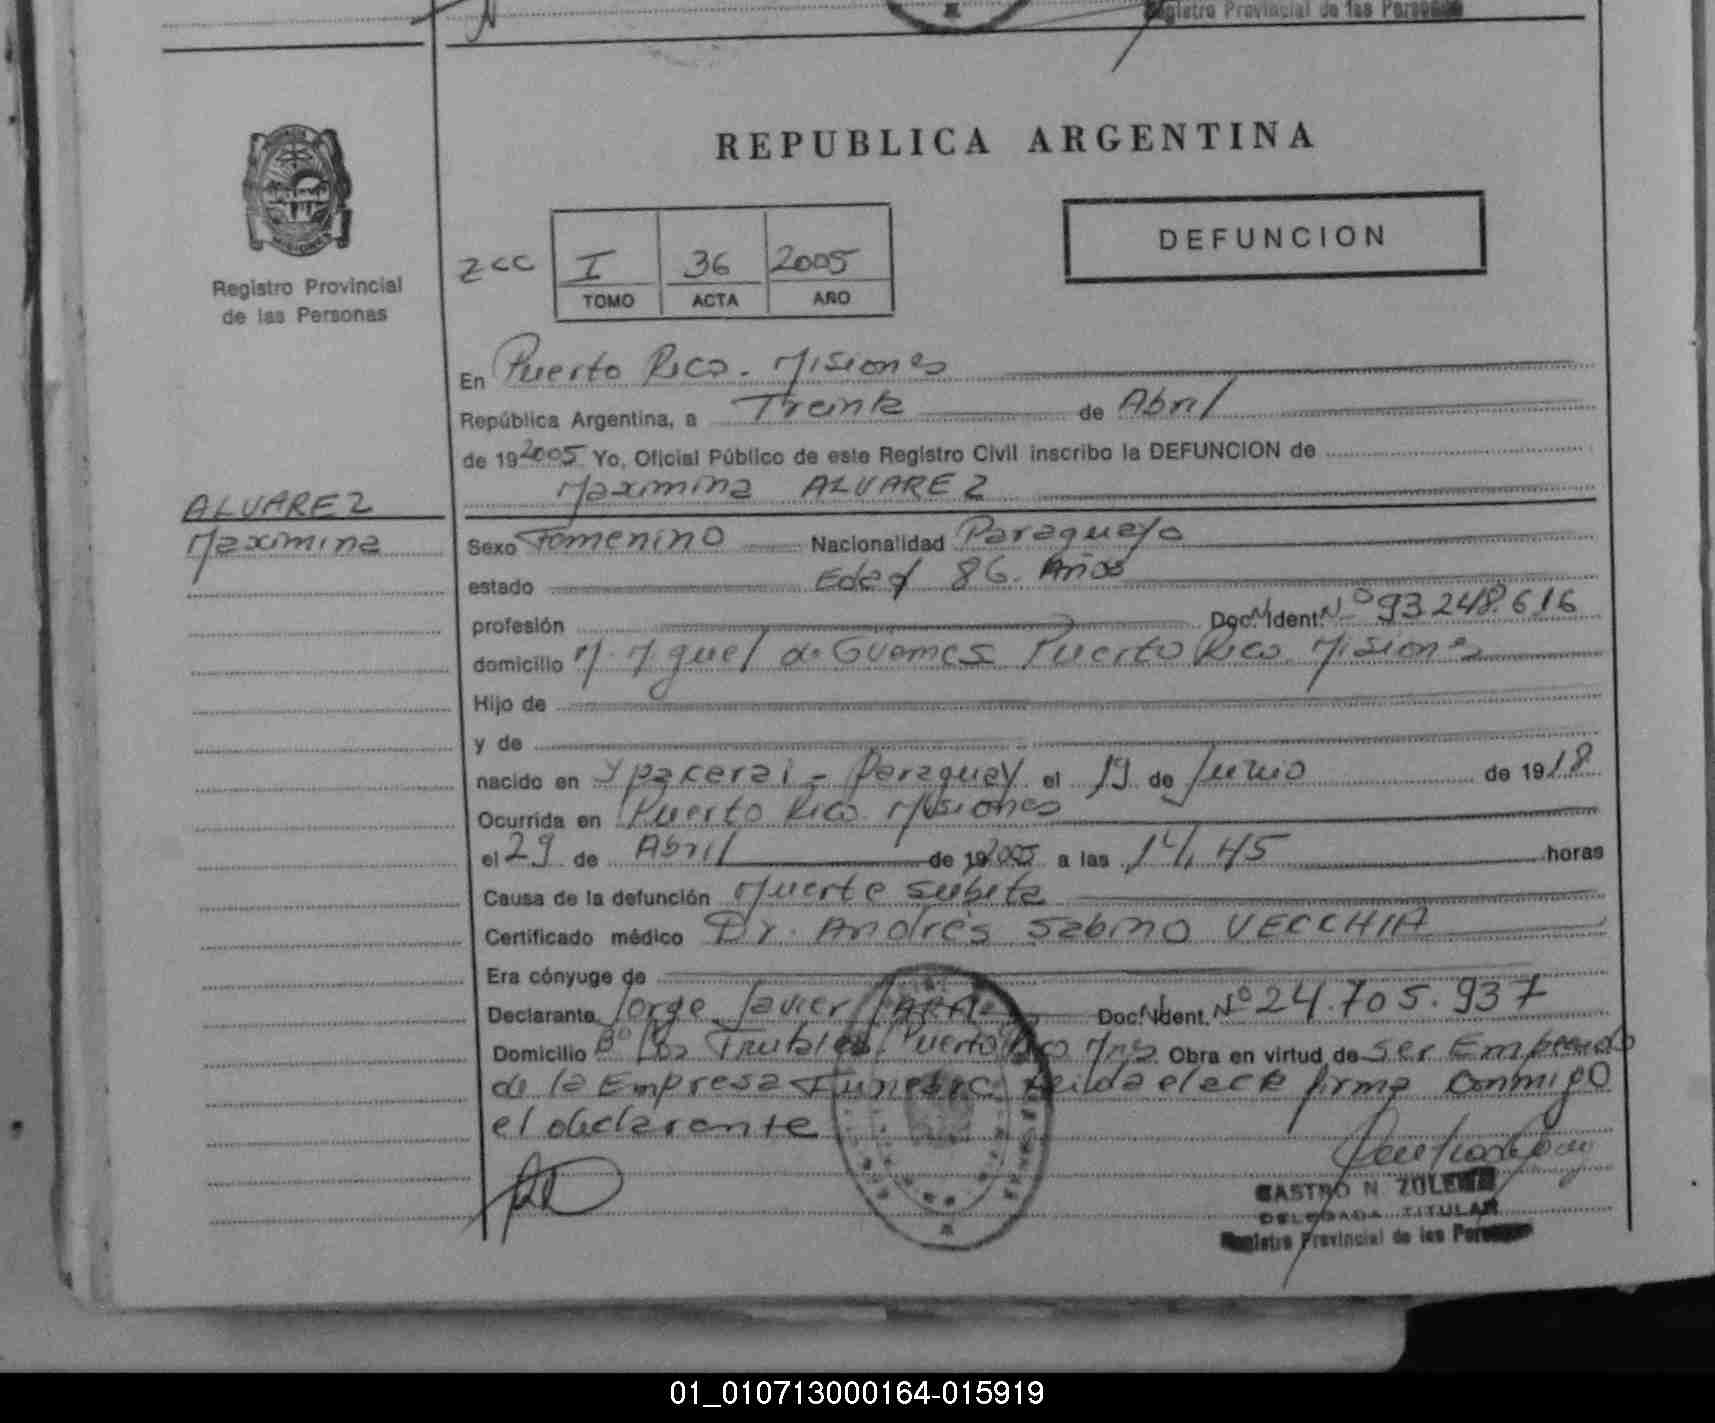 Registro Provincial de las Personas
REPUBLICA ARGENTINA
DEFUNCION
Registro Provincial
de las Personas
zcc I 36 2005
TOMO ACTA AÑO
En Puerto Rico. Misiones
República Argentina, a Treinta de Abril
de 192005 Yo, Oficial Público de este Registro Civil inscribo la DEFUNCION de
Maximina ALVAREZ
ALVAREZ
Maximina
Sexo Femenino Nacionalidad Paraguaya
estado Edad 86. Años
profesión Doc. N. Ident. Nº 93.248.616
domicilio M. Miguel de Guemes Puerto Rico. Misiones
Hijo de
y de
nacido en Ypacarai - Paraguay el 19 de Junio de 1918
Ocurrida en Puerto Rico. Misiones
el 29 de Abril de 192005 a las 14,45 horas
Causa de la defunción Muerte Subita
Certificado médico Dr. Andrés Sabino VECCHIA
Era cónyuge de
Declarante Jorge Javier Doc. N. Ident. Nº 24.705.937
Domicilio Bº Los Puerto Rico Mnes Obra en virtud de ser Empleado
de la Empresa firma conmigo
el declarante
CASTRO N. ZULEMA
DELEGADA TITULAR
Registro Provincial de las Personas
01_010713000164-015919